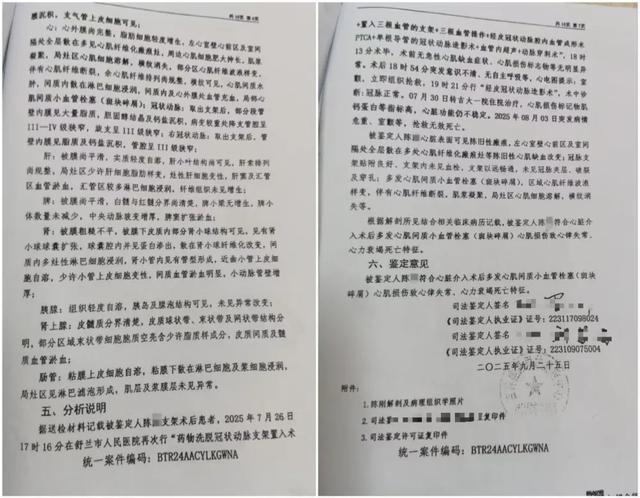 共10页 第6页
膜沉积，支气管上皮细胞可见；
心：心外膜尚完整，脂肪细胞轻度增生，左心室壁心前区及室间
隔处全层散在多处心肌纤维化瘢痕灶，周边心肌细胞肥大伸长，肌浆
凝聚，局灶区心肌细胞溶解，横纹消失，部分区心肌纤维波浪样变，
伴有心肌纤维断裂，余心肌纤维排列尚规整，横纹可见，心肌间质水
肿，间质内散在淋巴细胞浸润，间质内及心外膜处血管充血，局部心
肌间质小血管栓塞（斑块碎屑）；冠状动脉：取出支架后，部分段管
壁内膜见大量脂质，胆固醇结晶及钙盐沉积，病变较重处支管腔呈
III—IV级狭窄，旋支呈III级狭窄；右冠状动脉：取出支架后，管
壁内膜见脂质及钙盐沉积，管腔呈III级狭窄；
肝：被膜尚平滑，实质轻度自溶，肝小叶结构尚可见，肝索排列
尚规整，局灶区少许肝细胞脂肪样变，灶性肝细胞变性，肝窦及汇管
区血管淤血，汇管区较多淋巴细胞浸润，纤维组织未见增生；
脾：被膜尚平滑，白髓与红髓分界尚清楚，脾小梁无增生，脾小
体数量未减少，中央动脉玻变增厚，脾窦扩张淤血；
肾：被膜粗糙不平，被膜下皮质内部分肾小球结构可见，见有肾
小球球囊扩张，球囊腔内并见蛋白渗出，散在肾小球纤维化改变，间
质内多灶性淋巴细胞浸润，肾小管内见有管型形成，近曲小管上皮细
胞自溶，少许小管上皮细胞变性，间质血管淤血明显，小动脉管壁增
厚；
胰腺：组织轻度自溶，胰岛及腺泡结构可见，未见异常改变；
肾上腺：皮髓质分界清楚，皮质球状带、束状带及网状带结构分
明，部分区域束状带细胞胞质空亮含少许脂质样成分，皮质间质及髓
质血管淤血；
肠管：粘膜上皮细胞自溶，粘膜下散在淋巴细胞及浆细胞浸润，
局灶区见淋巴滤泡形成，肌层及浆膜层未见异常。
五、分析说明
据送检材料记载被鉴定人陈 支架术后患者，2025年7月26日
17时16分在舒兰市人民医院再次行“药物洗脱冠状动脉支架置入术
统一案件编码：BTR24AACYLKGWNA
共10页 第7页
+置入三根血管的支架+三根血管操作+经皮冠状动脉腔内血管成形术
PTCA+单根导管的冠状动脉造影术+血管内超声+动脉穿刺术”，18时
13分术毕，术前无急性心肌缺血症状、心肌损伤标志物等无明显异
常。术后18时54分突发意识不清、无自主呼吸等，心电图提示：室
颤，立即组织抢救，19时21分行“经皮冠状动脉造影术”，术中诊
断：冠脉正常。07月30日转吉大一院住院治疗，心肌损伤标记物肌
钙蛋白等指标高，心脏功能仍不稳定。2025年08月03日突发病情
危重、室颤等，抢救无效死亡。
被鉴定人陈 心脏表面可见陈旧性瘢痕，左心室壁心前区及室间
隔处全层散在多处心肌纤维化瘢痕灶等陈旧性心肌缺血改变；冠脉支
架贴附良好、支架内未见血栓，支架以远畅通，未见冠脉夹层、破裂
及穿孔；多发心肌间质小血管栓塞（斑块碎屑），区域心肌纤维波浪
样变，伴有心肌纤维断裂，肌浆凝聚，局灶区心肌细胞溶解，横纹消
失等。
根据解剖所见结合相关临床病历记载，被鉴定人陈 符合心脏介
入术后多发心肌间质小血管栓塞（斑块碎屑）心肌损伤致心律失常、
心力衰竭死亡特征。
六、鉴定意见
被鉴定人陈 符合心脏介入术后多发心肌间质小血管栓塞（斑块
碎屑）心肌损伤致心律失常、心力衰竭死亡特征。
司法鉴定人签名
《司法鉴定人执业证》证号：223117098024
司法鉴定人签名
《司法鉴定人执业证》证号：223109075004
二〇二五年九月二十五日
附件：
1. 陈刚解剖及病理组织学照片
2. 司法 复印件
3. 司法鉴定许可证复印件
统一案件编码：BTR24AACYLKGWNA